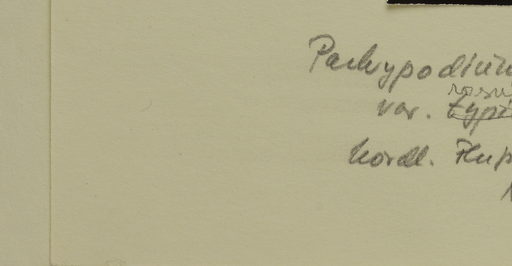 Pachypodium
rosu
var. typi
nördl. Flup